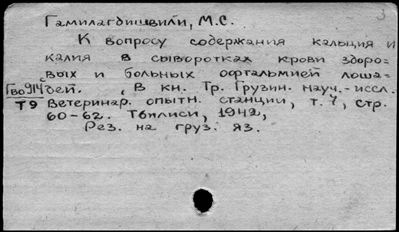 3
Гамилагдишвили, М.С.
К вопросу содержания кальция и
калия в сыворотках крови здоро=
вых и больных офтальмией лоша=
Гво914 дей. , В кн. Тр. Грузин. науч.-иссл.
Т9 Ветеринар. опытн. станции, т. 7, стр.
60-62. Тбилиси, 1942,
Рез. на груз. яз.